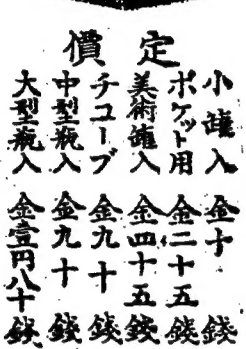 定價
小罐入 金十錢
ポケット用 金二十五錢
美術罐入 金四十五錢
チューブ 金九十錢
中型瓶入 金九十錢
大型瓶入 金壹円八十錢